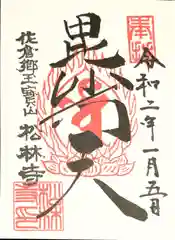 奉拝
令和二年一月五日
毘沙門天
佐倉郷王寶山
松林寺